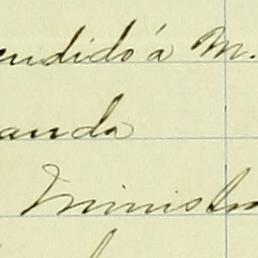 endido á M.
anda
Ministr